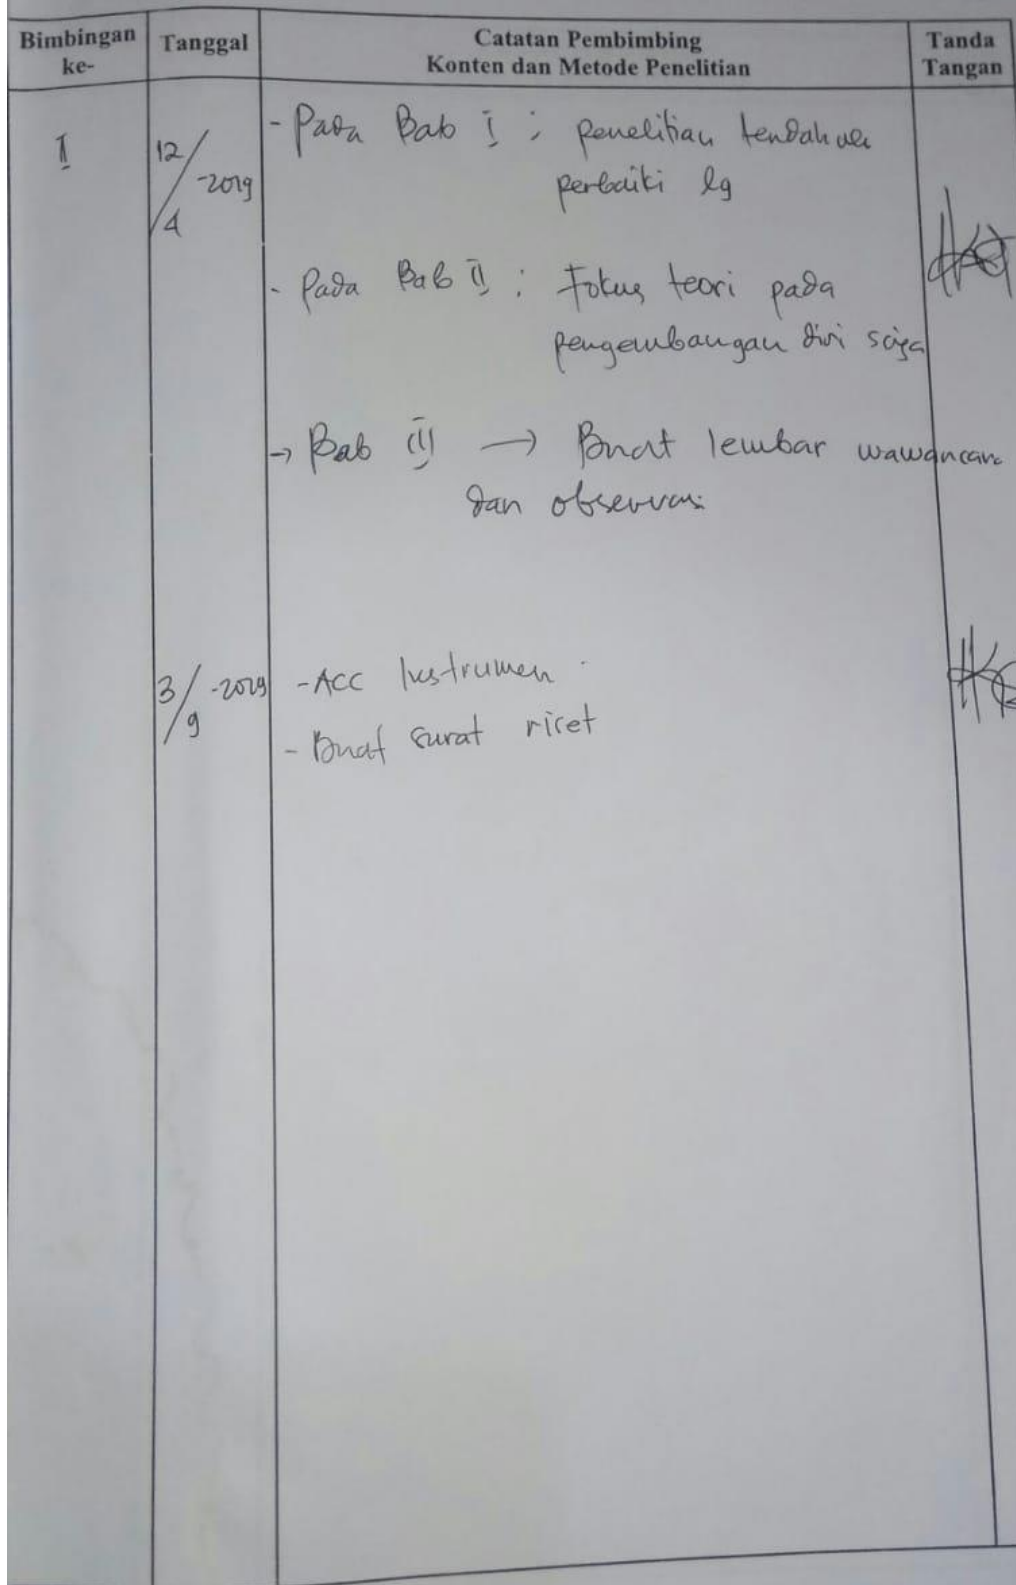 Bimbingan ke-
Tanggal
Catatan Pembimbing
Konten dan Metode Penelitian
Tanda Tangan
I
12/4 -2019
- Pada Bab I ; penelitian terdahulu
perbaiki lg
- Pada Bab II : Fokus teori pada
pengembangan diri saja
→ Bab III → Buat lembar wawancara
dan observasi
3/9 -2019
- ACC Instrumen
- Buat surat riset